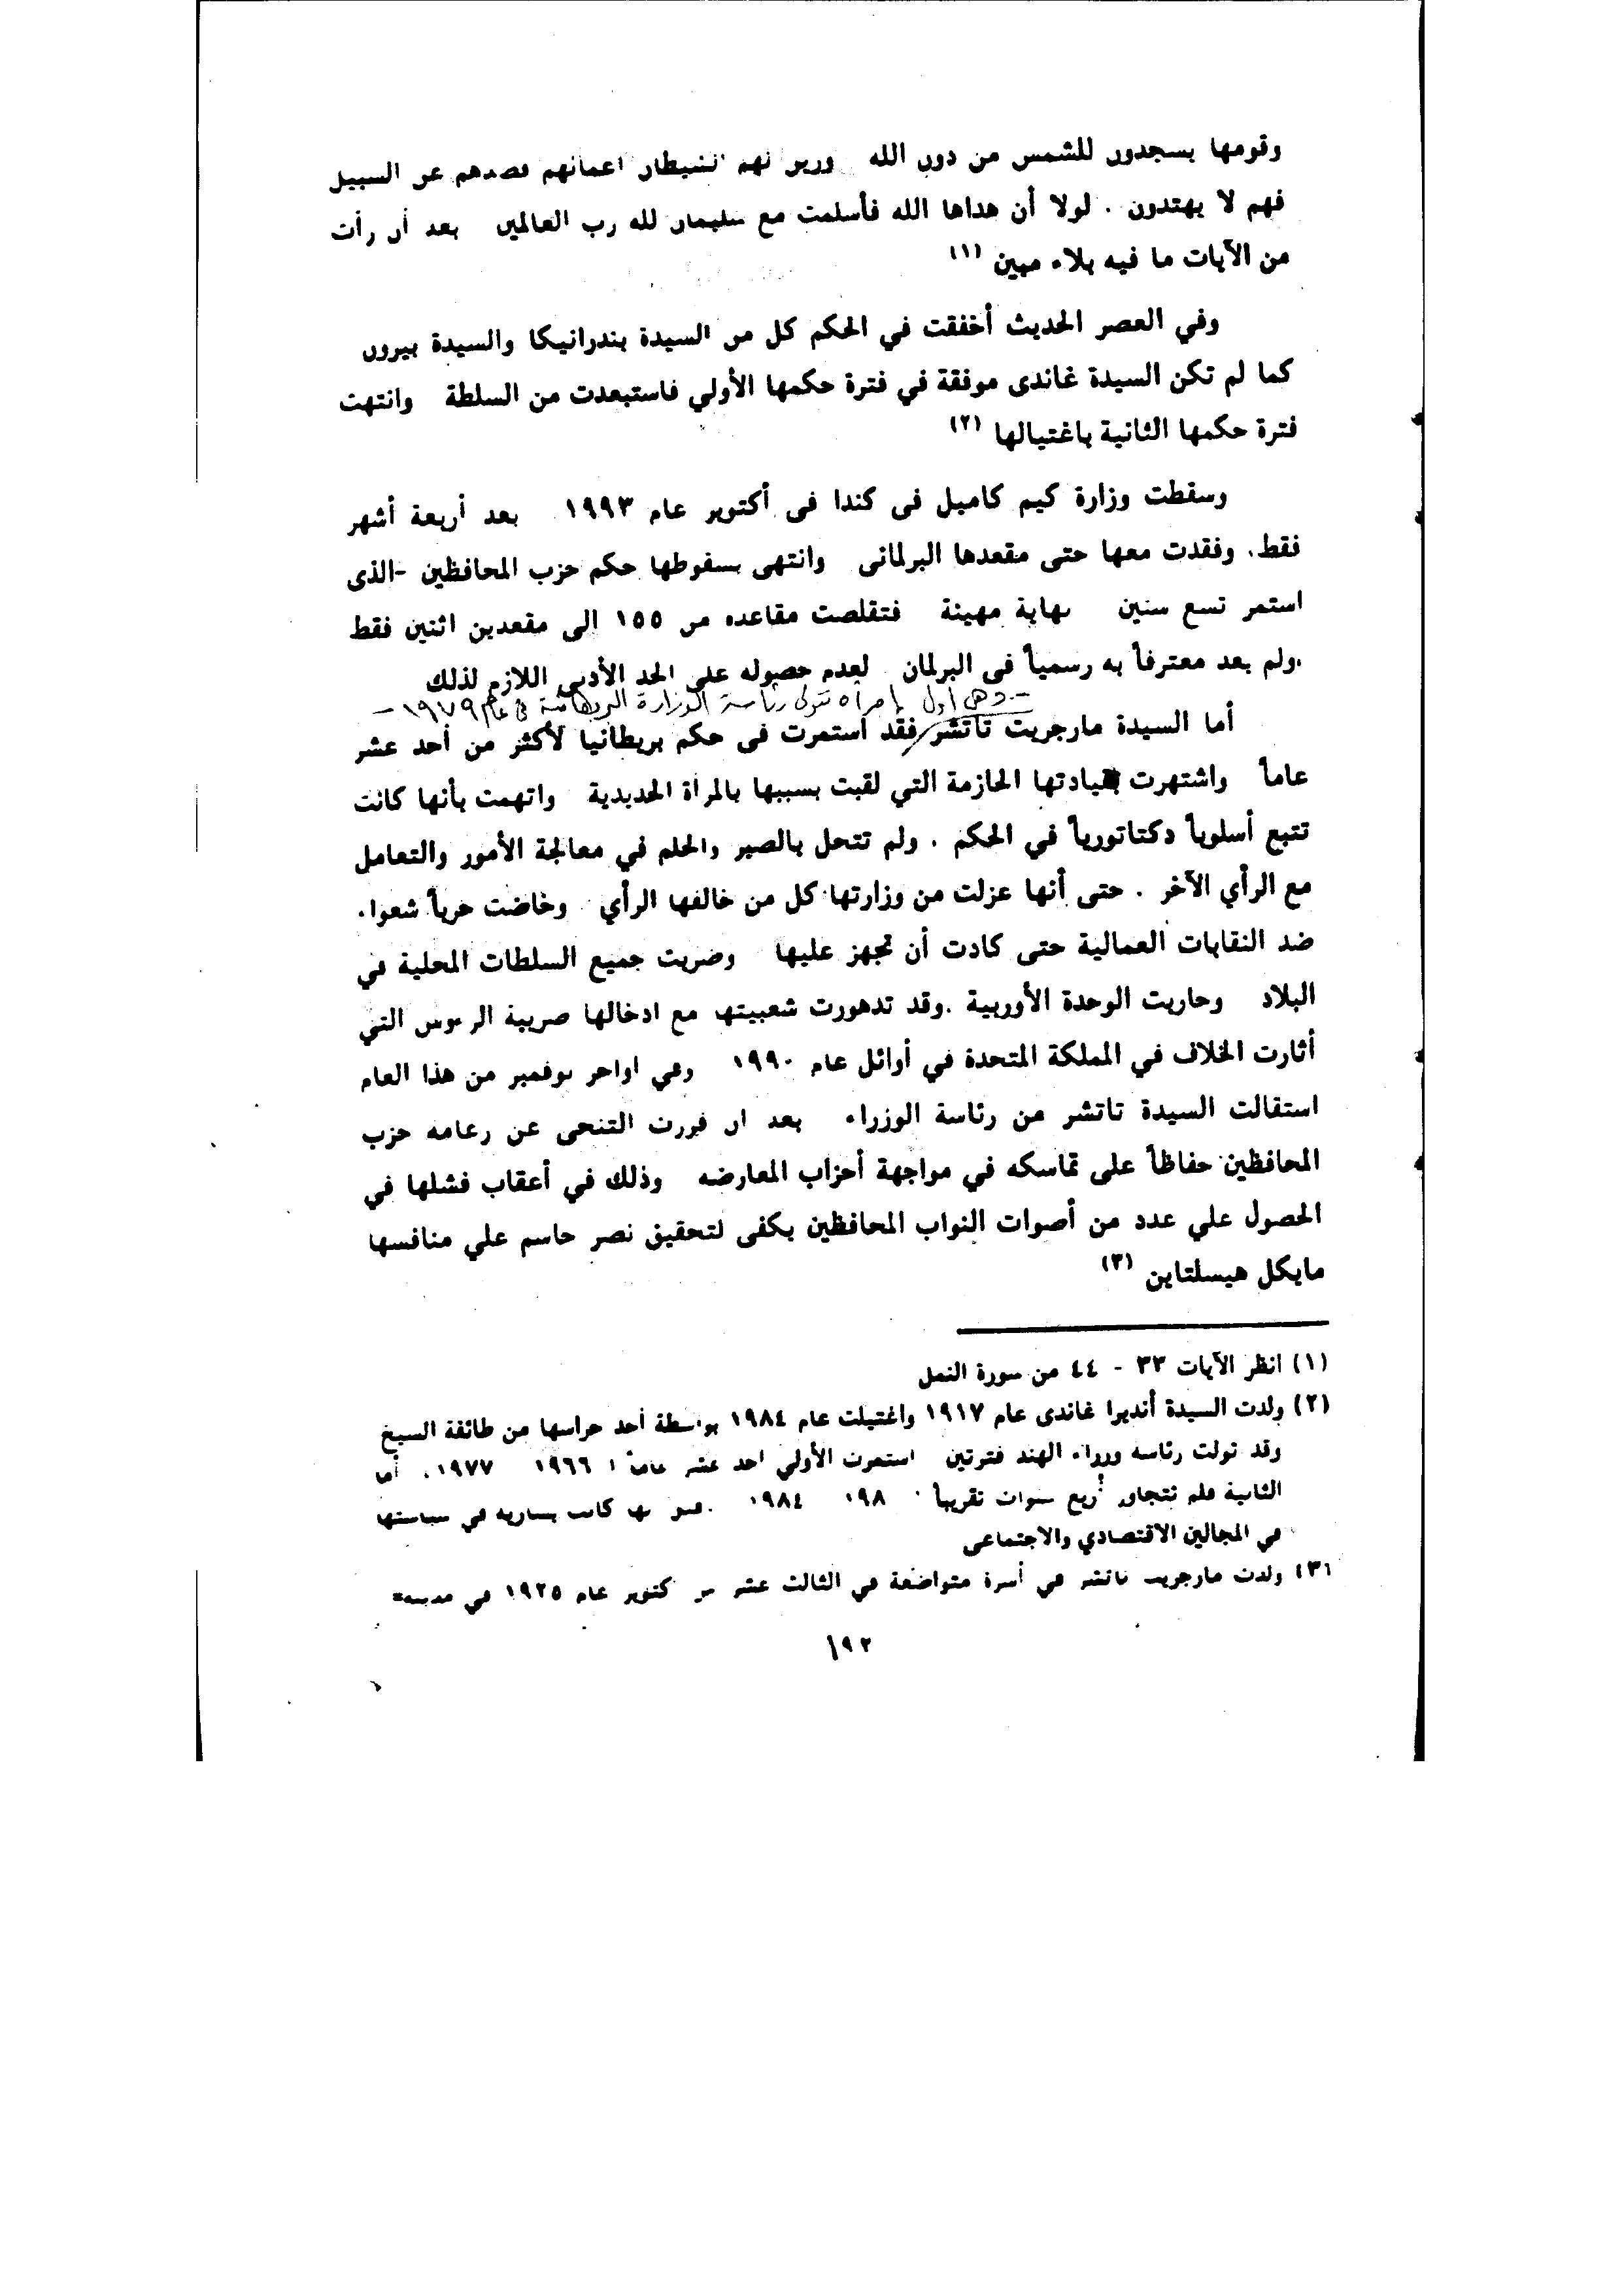 وقومها يسجدون للشمس من دون الله وزين لهم الشيطان أعمالهم فصدهم عن السبيل
فهم لا يهتدون . لولا أن هداها الله فأسلمت مع سليمان لله رب العالمين بعد أن رأت
من الآيات ما فيه بلاء مبين (١)
وفي العصر الحديث أخفقت في الحكم كل من السيدة بندرانيكا والسيدة بيرون
كما لم تكن السيدة غاندى موفقة في فترة حكمها الأولي فاستبعدت من السلطة وانتهت
فترة حكمها الثانية باغتيالها (٢)
وسقطت وزارة كيم كامبل فى كندا فى أكتوبر عام ١٩٩٣ بعد أربعة أشهر
فقط. وفقدت معها حتى مقعدها البرلمانى وانتهى بسقوطها حكم حزب المحافظين -الذى
استمر تسع سنين نهاية مهينة فتقلصت مقاعده من ١٥٥ الى مقعدين اثنين فقط
.ولم يعد معترفاً به رسمياً فى البرلمان لعدم حصوله على الحد الأدنى اللازم لذلك
- وهى أول إمرأة تتولى رئاسة الوزارة البريطانية فى عام ١٩٧٩ -
أما السيدة مارجريت تاتشر فقد استمرت فى حكم بريطانيا لأكثر من أحد عشر
عاماً واشتهرت بقيادتها الحازمة التي لقبت بسببها بالمرأة الحديدية واتهمت بأنها كانت
تتبع أسلوباً دكتاتورياً في الحكم . ولم تتحل بالصبر والحلم في معالجة الأمور والتعامل
مع الرأي الآخر . حتى أنها عزلت من وزارتها كل من خالفها الرأي وخاضت حرباً شعواء
ضد النقابات العمالية حتى كادت أن تجهز عليها وضربت جميع السلطات المحلية في
البلاد وحاربت الوحدة الأوربية .وقد تدهورت شعبيتها مع ادخالها ضريبة الرءوس التي
أثارت الخلاف في المملكة المتحدة في أوائل عام ١٩٩٠ وفي اواخر نوفمبر من هذا العام
استقالت السيدة تاتشر من رئاسة الوزراء بعد ان قررت التنحى عن زعامه حزب
المحافظين حفاظاً على تماسكه في مواجهة أحزاب المعارضه وذلك في أعقاب فشلها في
الحصول علي عدد من أصوات النواب المحافظين يكفى لتحقيق نصر حاسم علي منافسها
مايكل هيسلتاين (٣)
(١) انظر الآيات ٢٣ - ٤٤ من سورة النمل
(٢) ولدت السيدة أنديرا غاندى عام ١٩١٧ واغتيلت عام ١٩٨٤ بواسطة أحد حراسها من طائفة السيخ
وقد تولت رئاسه وزراء الهند فترتين استمرت الأولي احد عشر عاما ١٩٦٦ ١٩٧٧ . أما
الثانية فلم تتجاوز أربع سنوات تقريباً ١٩٨٠ ١٩٨٤ كانت يساريه في سياستها
في المجالين الاقتصادي والاجتماعى
(٣) ولدت مارجريت تاتشر في أسرة متواضعة في الثالث عشر من اكتوبر عام ١٩٢٥ في مدينة=
١٩٢